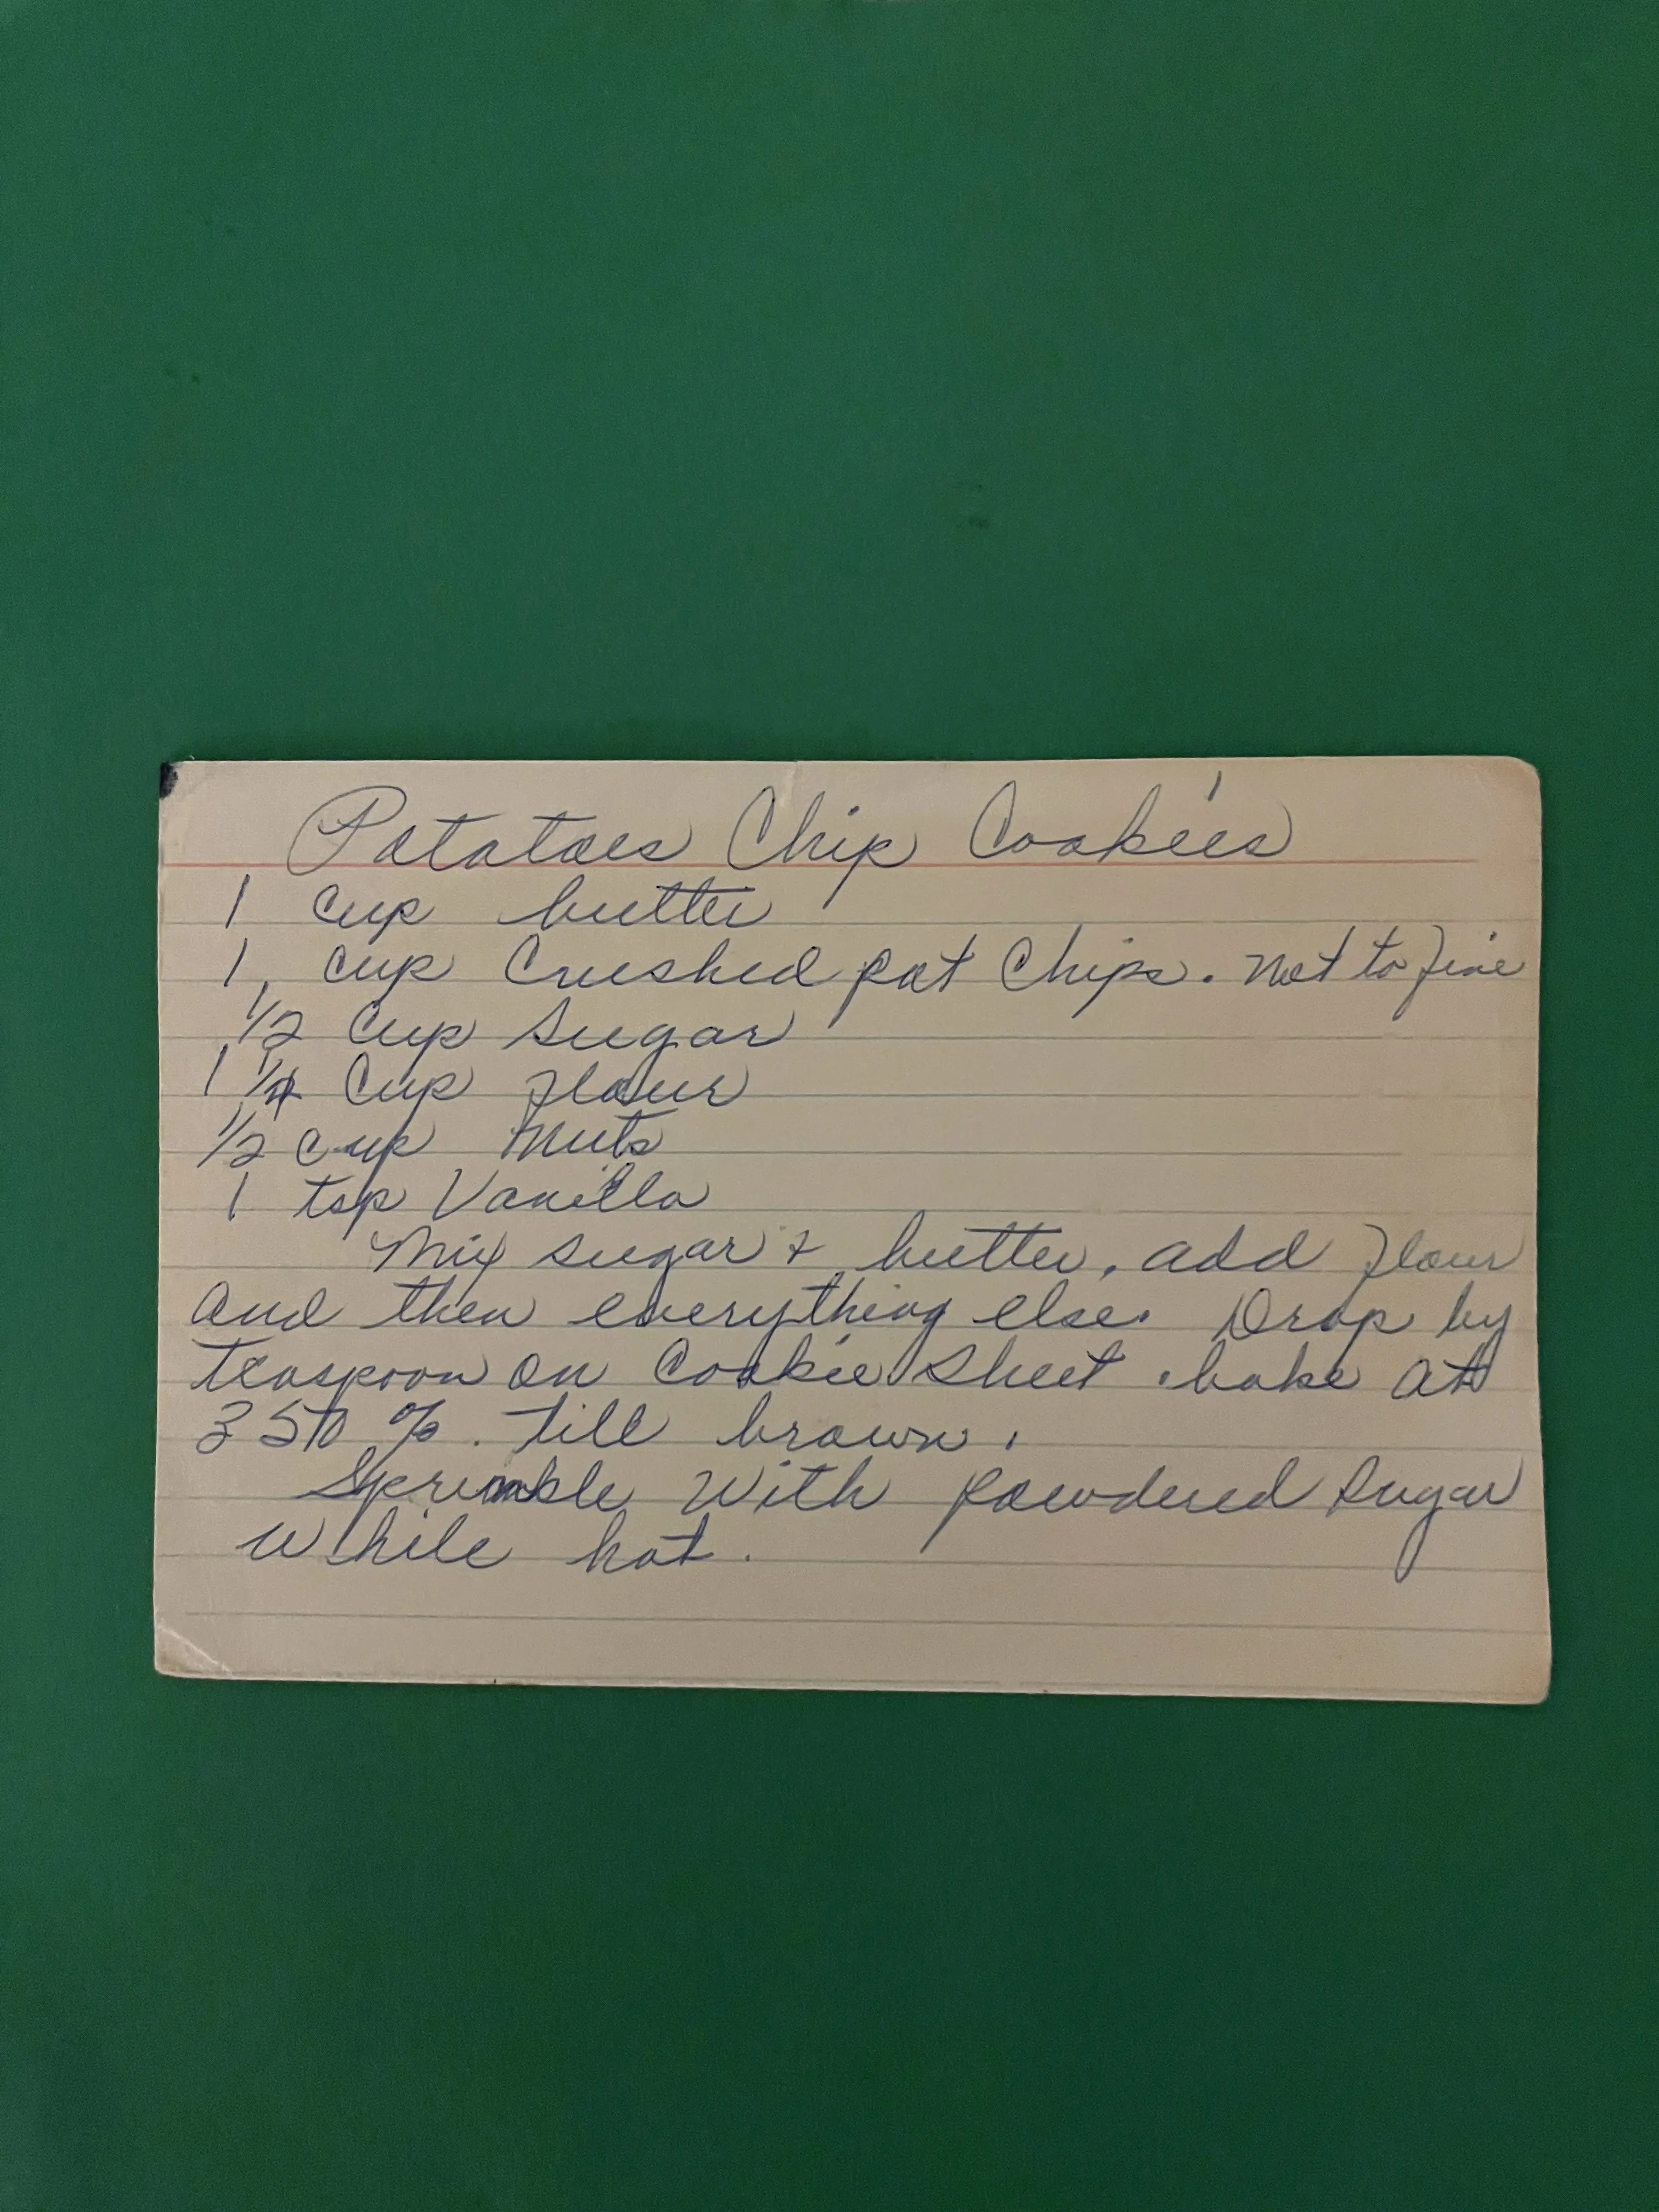 Potatoes Chip Cookies
1 cup butter
1 cup Crushed pot Chips. Not to fine
1/2 Cup Sugar
1 1/4 Cup flour
1/2 cup Nuts
1 tsp Vanilla
Mix sugar + butter, add flour
and then everything else. Drop by
teaspoon on Cookie Sheet. bake at
350 %. till brown.
Sprinkle With powdered Sugar
While hot.